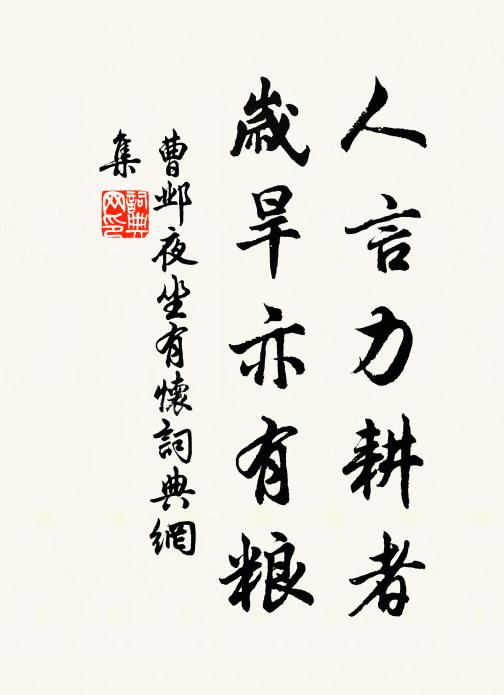 人言力耕者
歲旱亦有粮
曹邺夜坐有懷詞典網
集
詞典
网印